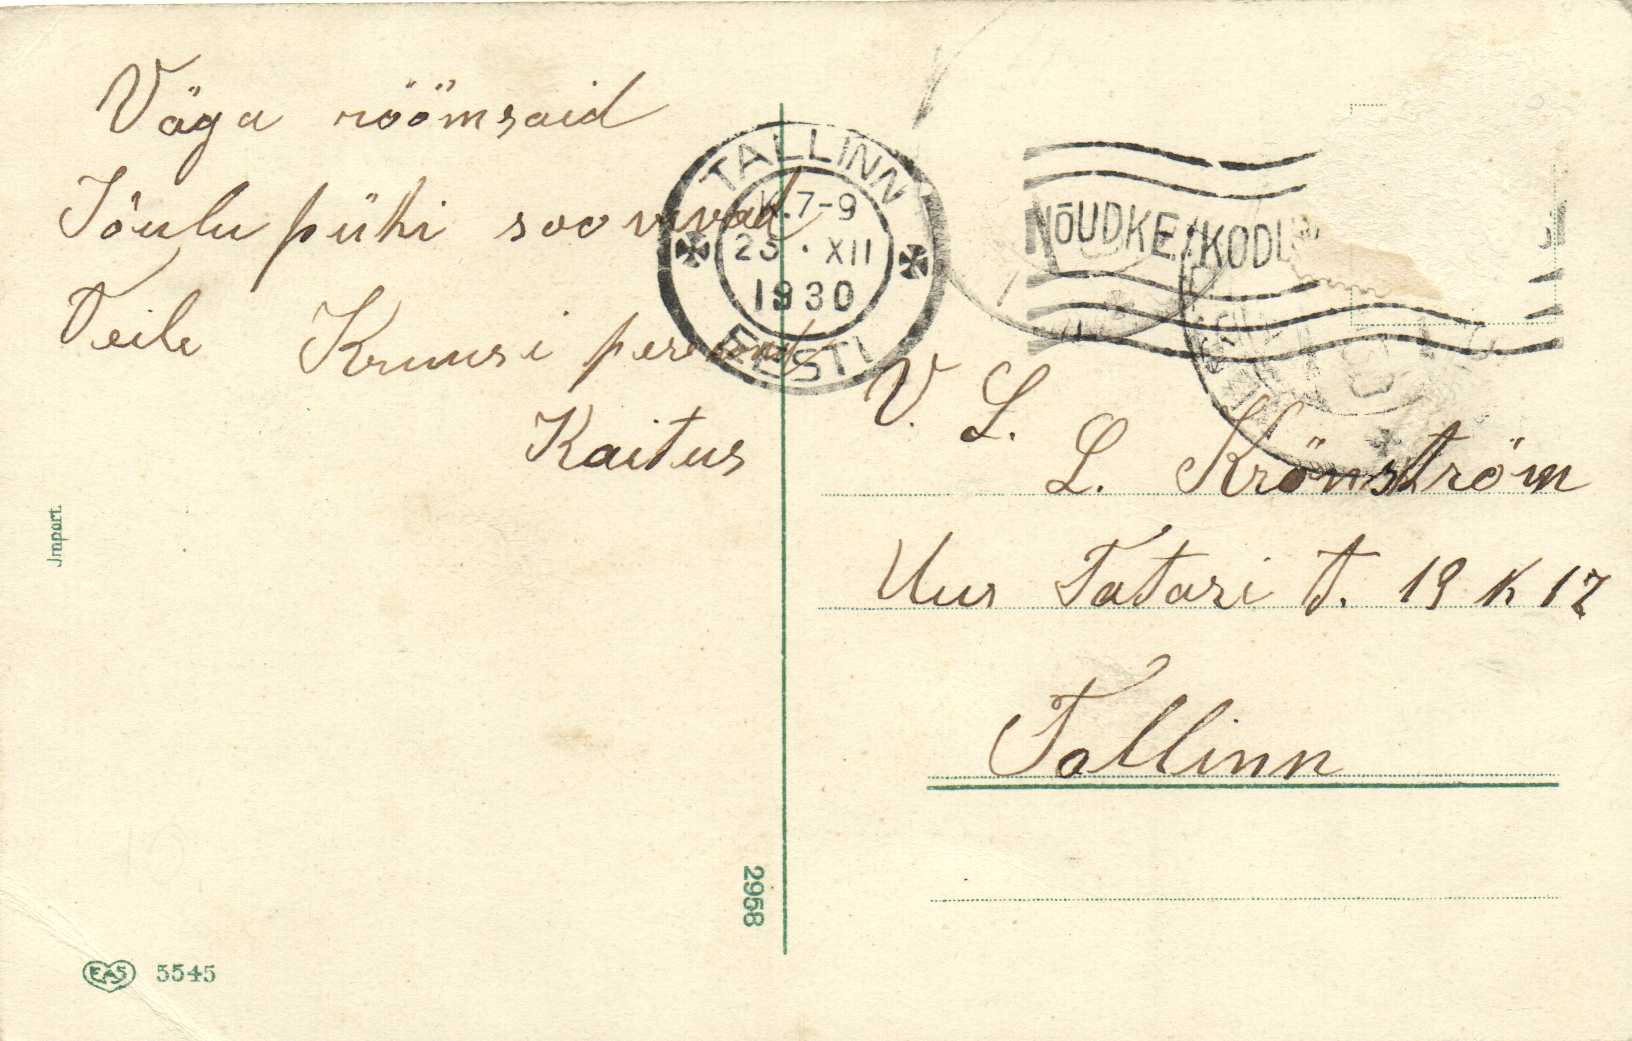 Väga röömsaid
Jõulu pühi soovivad
Teile Kruusi
Kaitus
TALLINN
K.7-9
XII
1930
EESTI
NÕUDKE
V. L.
L. Krönström
Uus Tatari t. 19 K 17
Tallinn
Import.
2958
EAS 5545